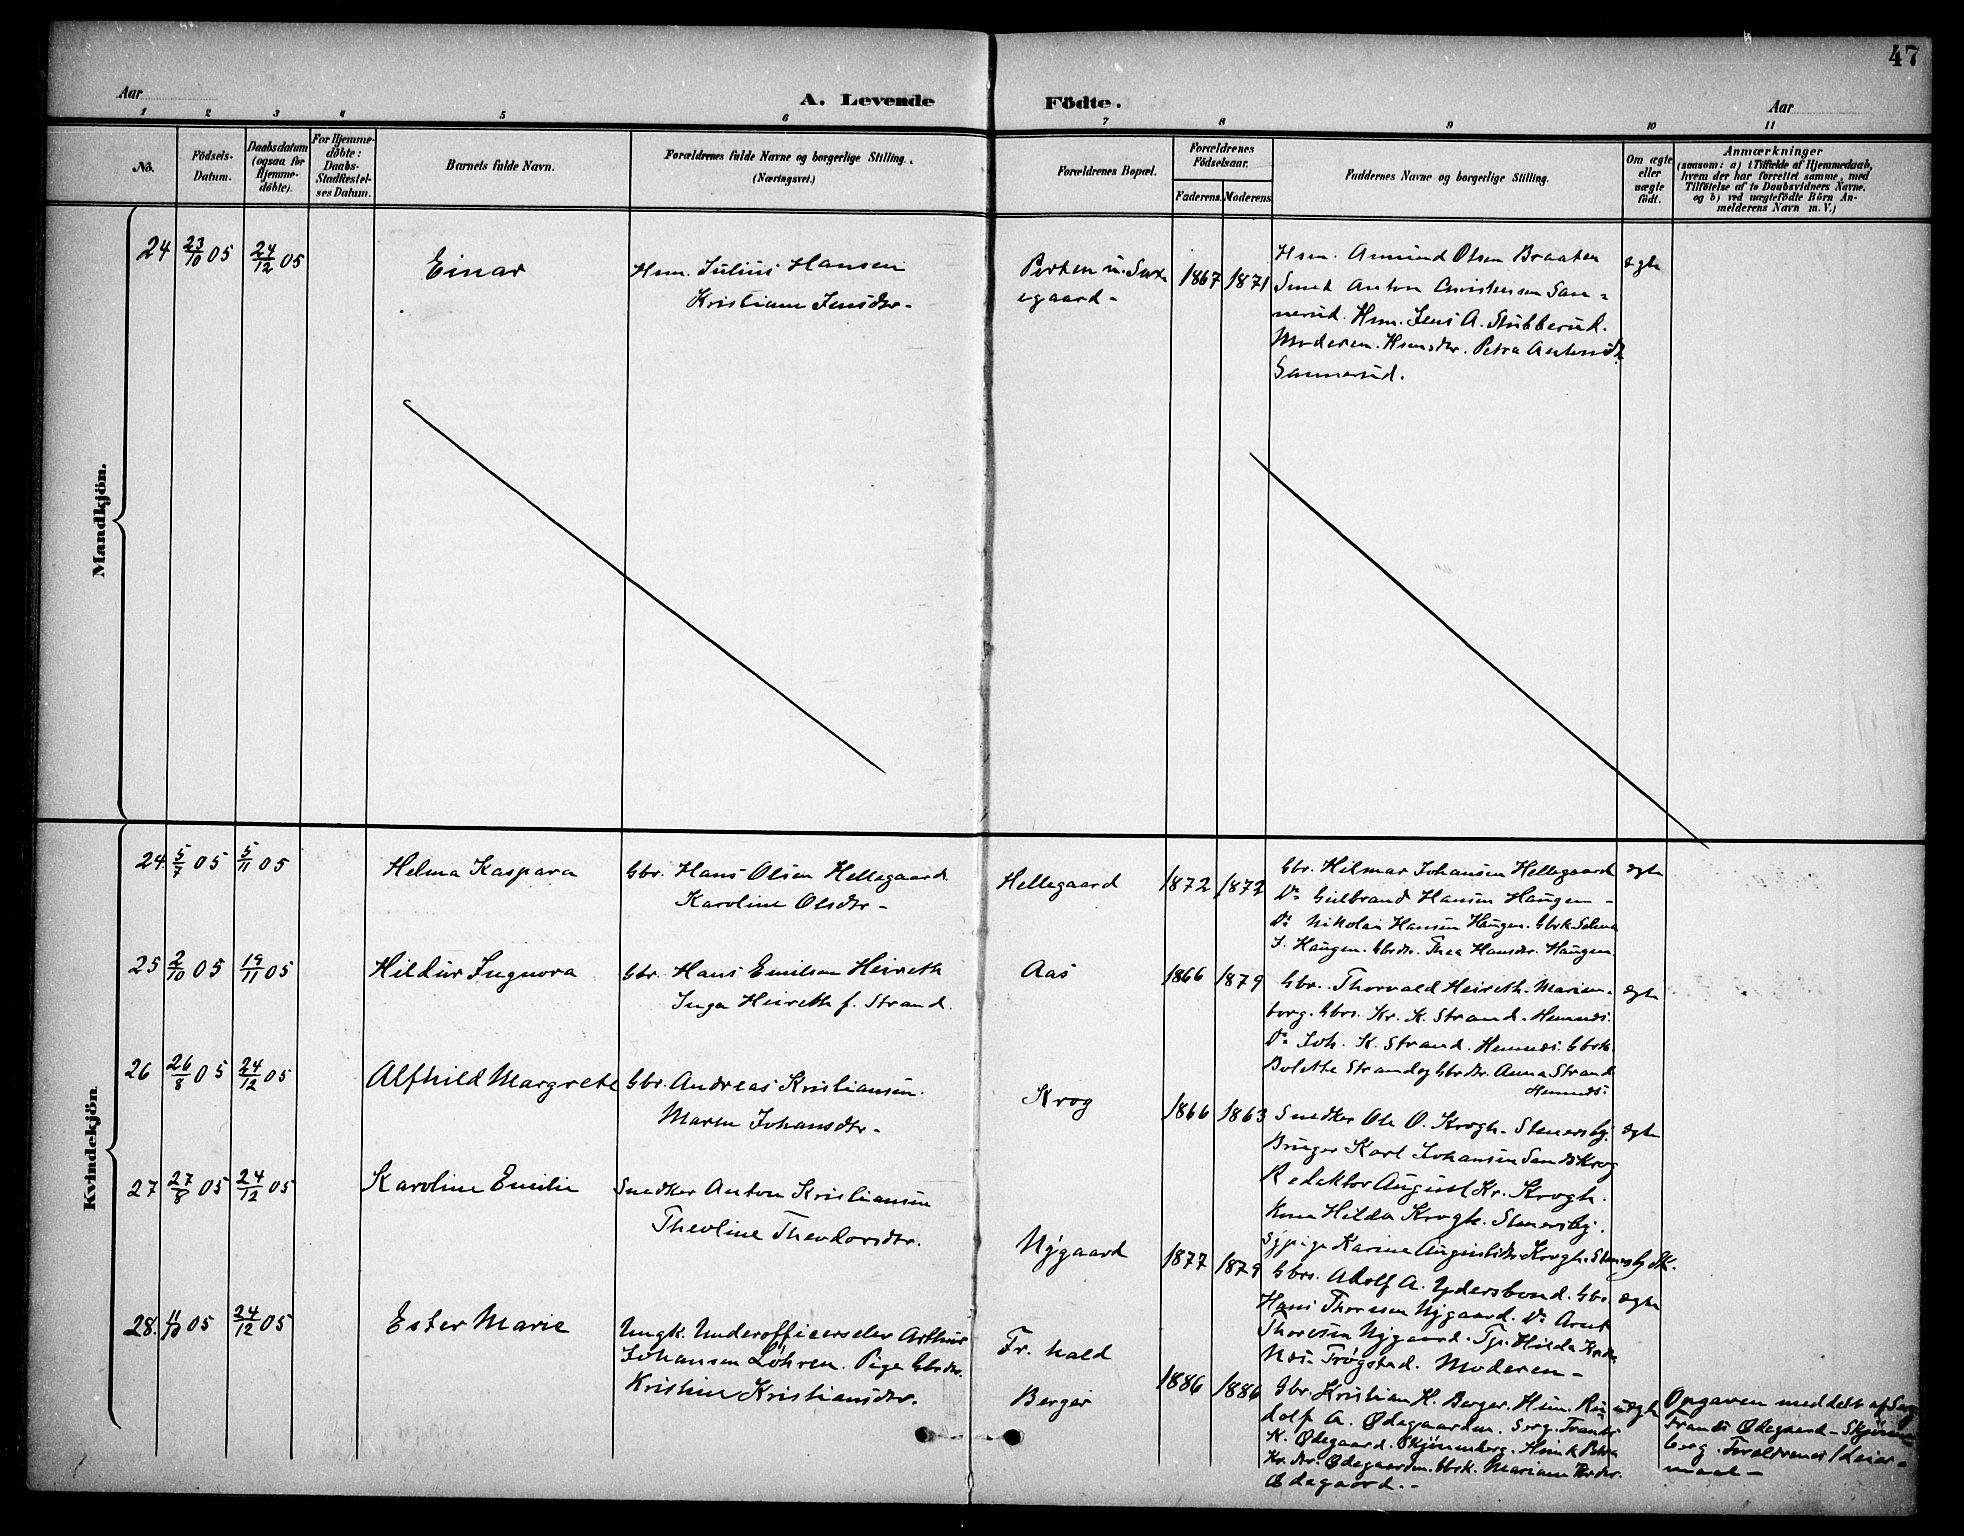 47
Aar
A. Levende
Födte.
Aar
1 2 3 4 5 6 7 8 9 10 11
No.
Födsels-
Datum.
Daabsdatum
(ogsaa for
Hjemme-
döbte).
For Hjemme-
döbte:
Daabs-
Stadfæstel-
ses Datum.
Barnets fulde Navn.
Forældrenes fulde Navne og borgerlige Stilling.
(Næringsvei.)
Forældrenes Bopæl.
Forældrenes
Födselsaar.
Faderens. Moderens.
Faddernes Navne og borgerlige Stilling.
Om ægte
eller
uægte
födt.
Anmærkninger
(saasom: a) i Tilfælde af Hjemmedaab,
hvem der har forrettet samme, med
Tilföielse af to Daabsvidners Navne.
og b) ved uægtefödte Börn An-
melderens Navn m. V.)
Mandkjön.
24 23/10 05 24/12 05
Einar
Hsm. Julius Hansen
Kristiane Jensdtr.
egaard -
1867 1871
Hsm. Amund Olsen Braaten
Smed Anton Christensen San-
nerud. Hsm. Jens A. Stubberud.
Moderen. Hsmdtr. Petra Antonsdt.
Sannerud.
ægte
Kvindekjön
24 5/7 05 5/11 05
Helma Kaspara
Gbr. Hans Olsen Hellegaard
Karoline Olsdtr -
Hellegaard
1872 1872
Gbr. Hilmar Johansen Hellegaard
Do Gulbrand Hansen Haugen -
Do Nikolai Hansen Haugen. Gbrk.
J. Haugen. Gbrdtr. Thea Hansdtr. Haugen.
ægte
25 2/10 05 19/11 05
Hildur Ingvora
Gbr. Hans Emilsen Heireth
Inga Heireth f. Strand.
Aas
1866 1879
Gbr. Thorvald Heireth. Marien-
borg. Gbrs. Kr. K. Strand. Hemnes.
Do Joh. K. Strand. Hemnes. Gbrk.
Bolette Strand og Gbrdtr. Anna Strand
Hemnes.
ægte
26 26/8 05 24/12 05
Alfhild Margrete
Gbr. Andreas Kristiansen.
Maren Johansdtr -
Krog
1866 1863
Snedker Ole O. Krogh. Stenersby.
Bruger Karl Johansen Sandskrog
Redaktør August Kr. Krogh.
Kone Hilda Krogh. Stenersby.
Sypige Karine Krogh.
ægte
27 27/8 05 24/12 05
Karoline Emilie
Snedker Anton Kristiansen
Theoline Theodorsdtr.
Nygaard
1877 1879
Gbrs. Adolf A. Ydersbond. Gbr.
Hans Thoresen Nygaard. Do Arnt
Thoresen Nygaard. Tj. Hilda
Trøgstad. Moderen -
ægte
28. 4/10 05 24/12 05
Ester Marie
Ungk. Underofficerselev Arthur
Johansen Løhren. Pige Gbrdtr.
Kristine Kristiansdtr.
Fr. hald
Berger
1886 1886
Gbr. Kristian H. Berger. Hsm. Ru-
dolf A. Ødegaarden. Serg. Frants
K. Ødegaard. Skjønnerberg. Hsmk. Petra
Kr. dtr. Ødegaarden. Gbrk. Mariane
Ødegaard. -
uægte
Opgaven meddelt af Serg.
Frants Ødegaard - Skjønner-
berg. Forældrenes 1 Leier-
maal -